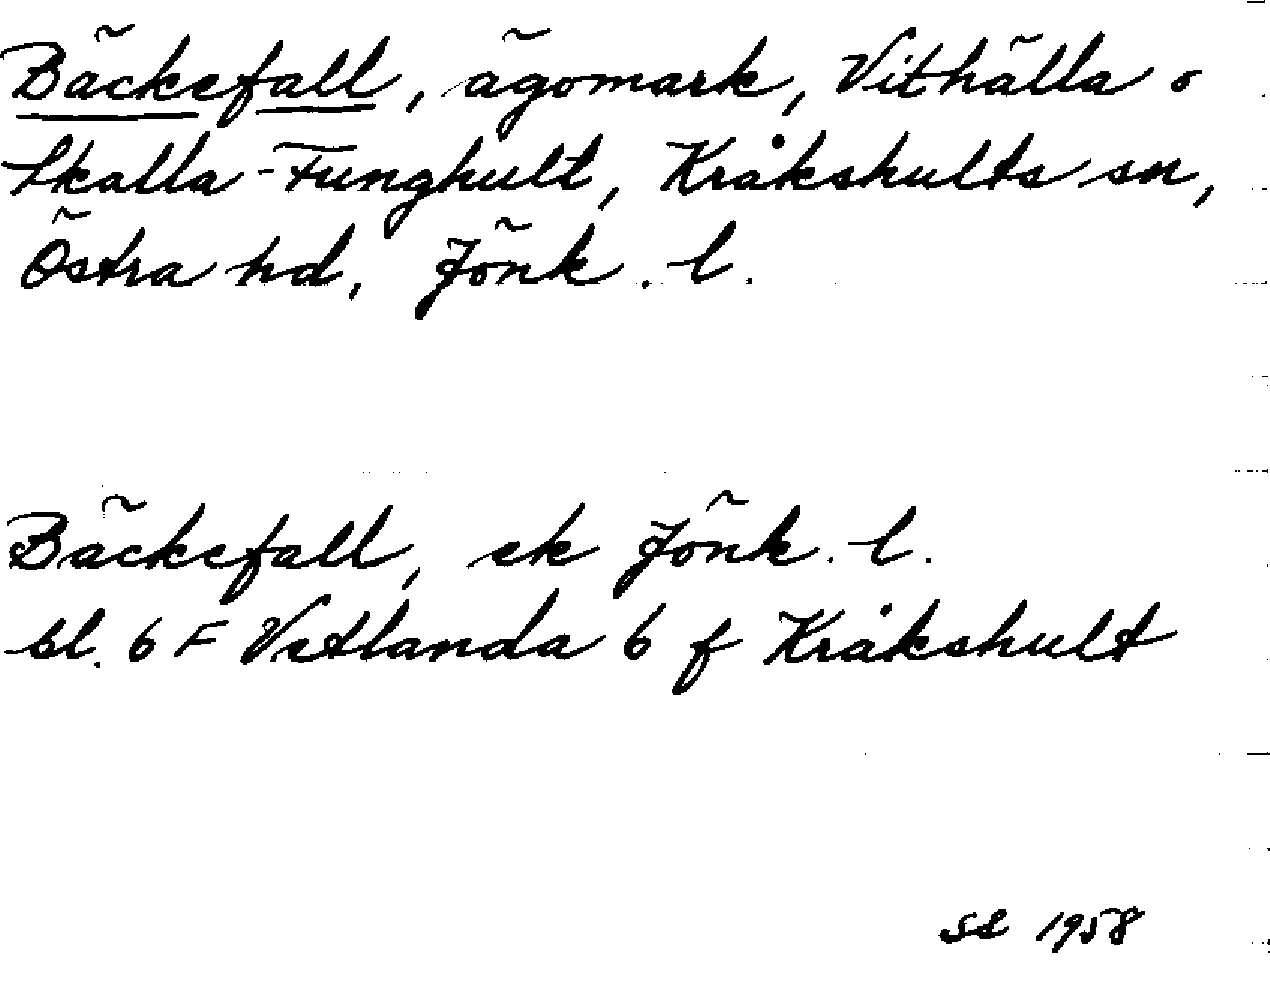 Bäckefall, ägomark, Vithälla o
Skalla-Funghult, Kråkshults sn,
Östra hd, Jönk. l.
Bäckefall, ek Jönk. l.
bl. 6 F Vetlanda 6 f Kråkshult
SE 1958